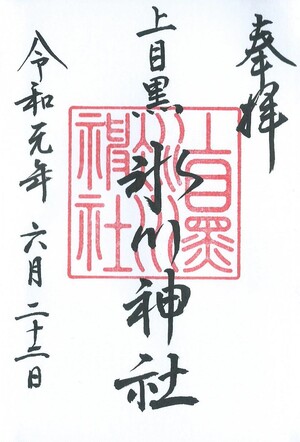 奉拝
上目黒氷川神社
令和元年六月二十二日
上目黒氷川神社